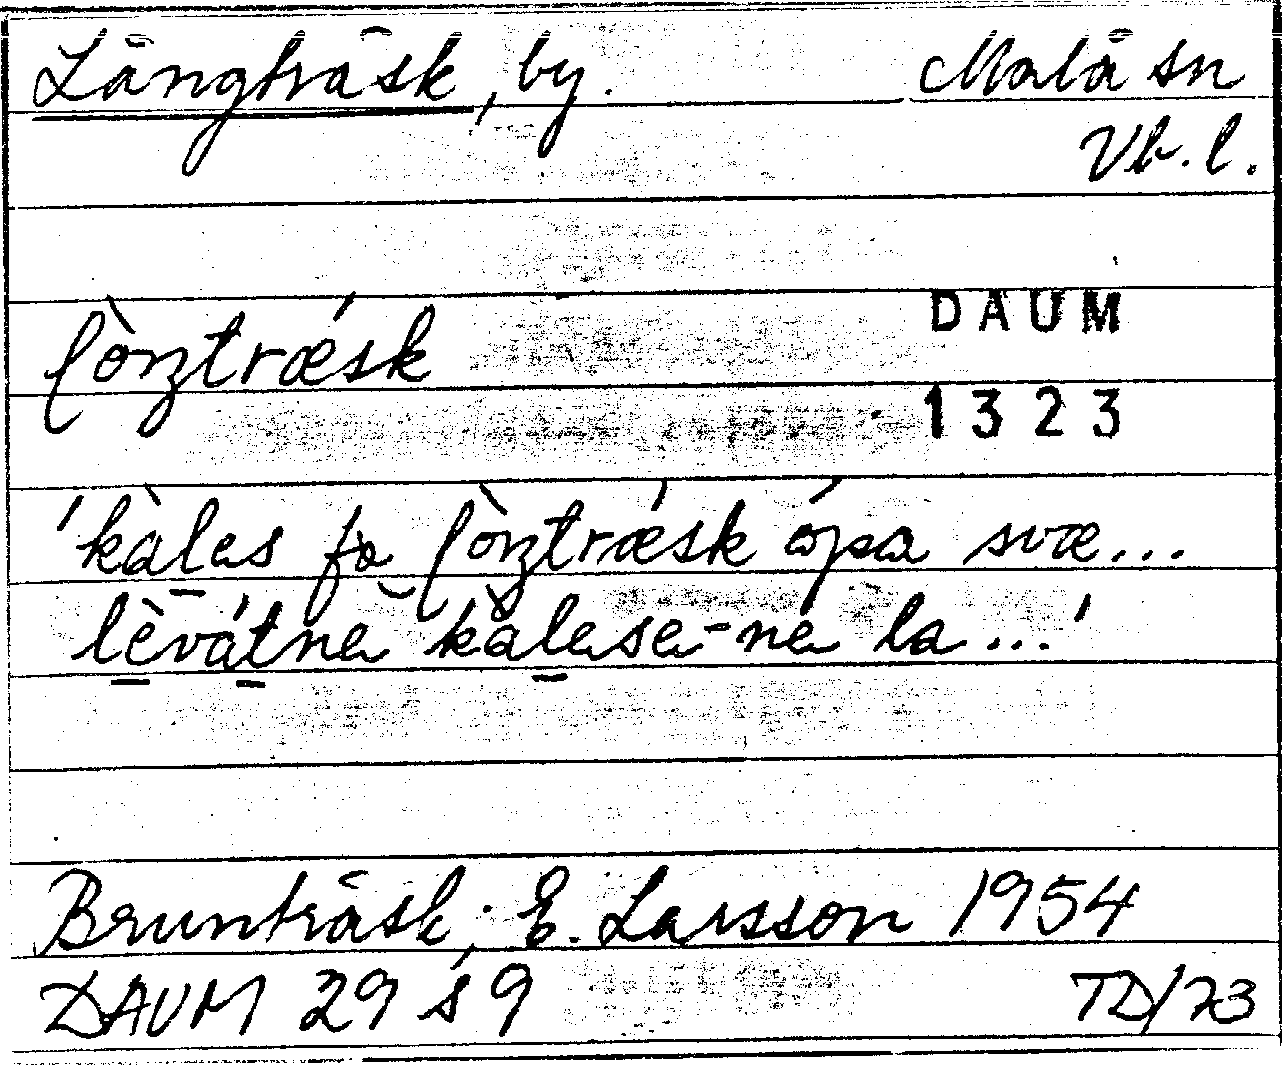 Långträsk, by. Malå sn
Vb. l.
lòŋtrǽsk
DAUM
1323
'kàles fø lòŋtrǽsk ópa svæ...
lèvátne kàlese-ne la...'
Brunträsk; E. Larsson 1954
DAUM 29 s 9 TD/73